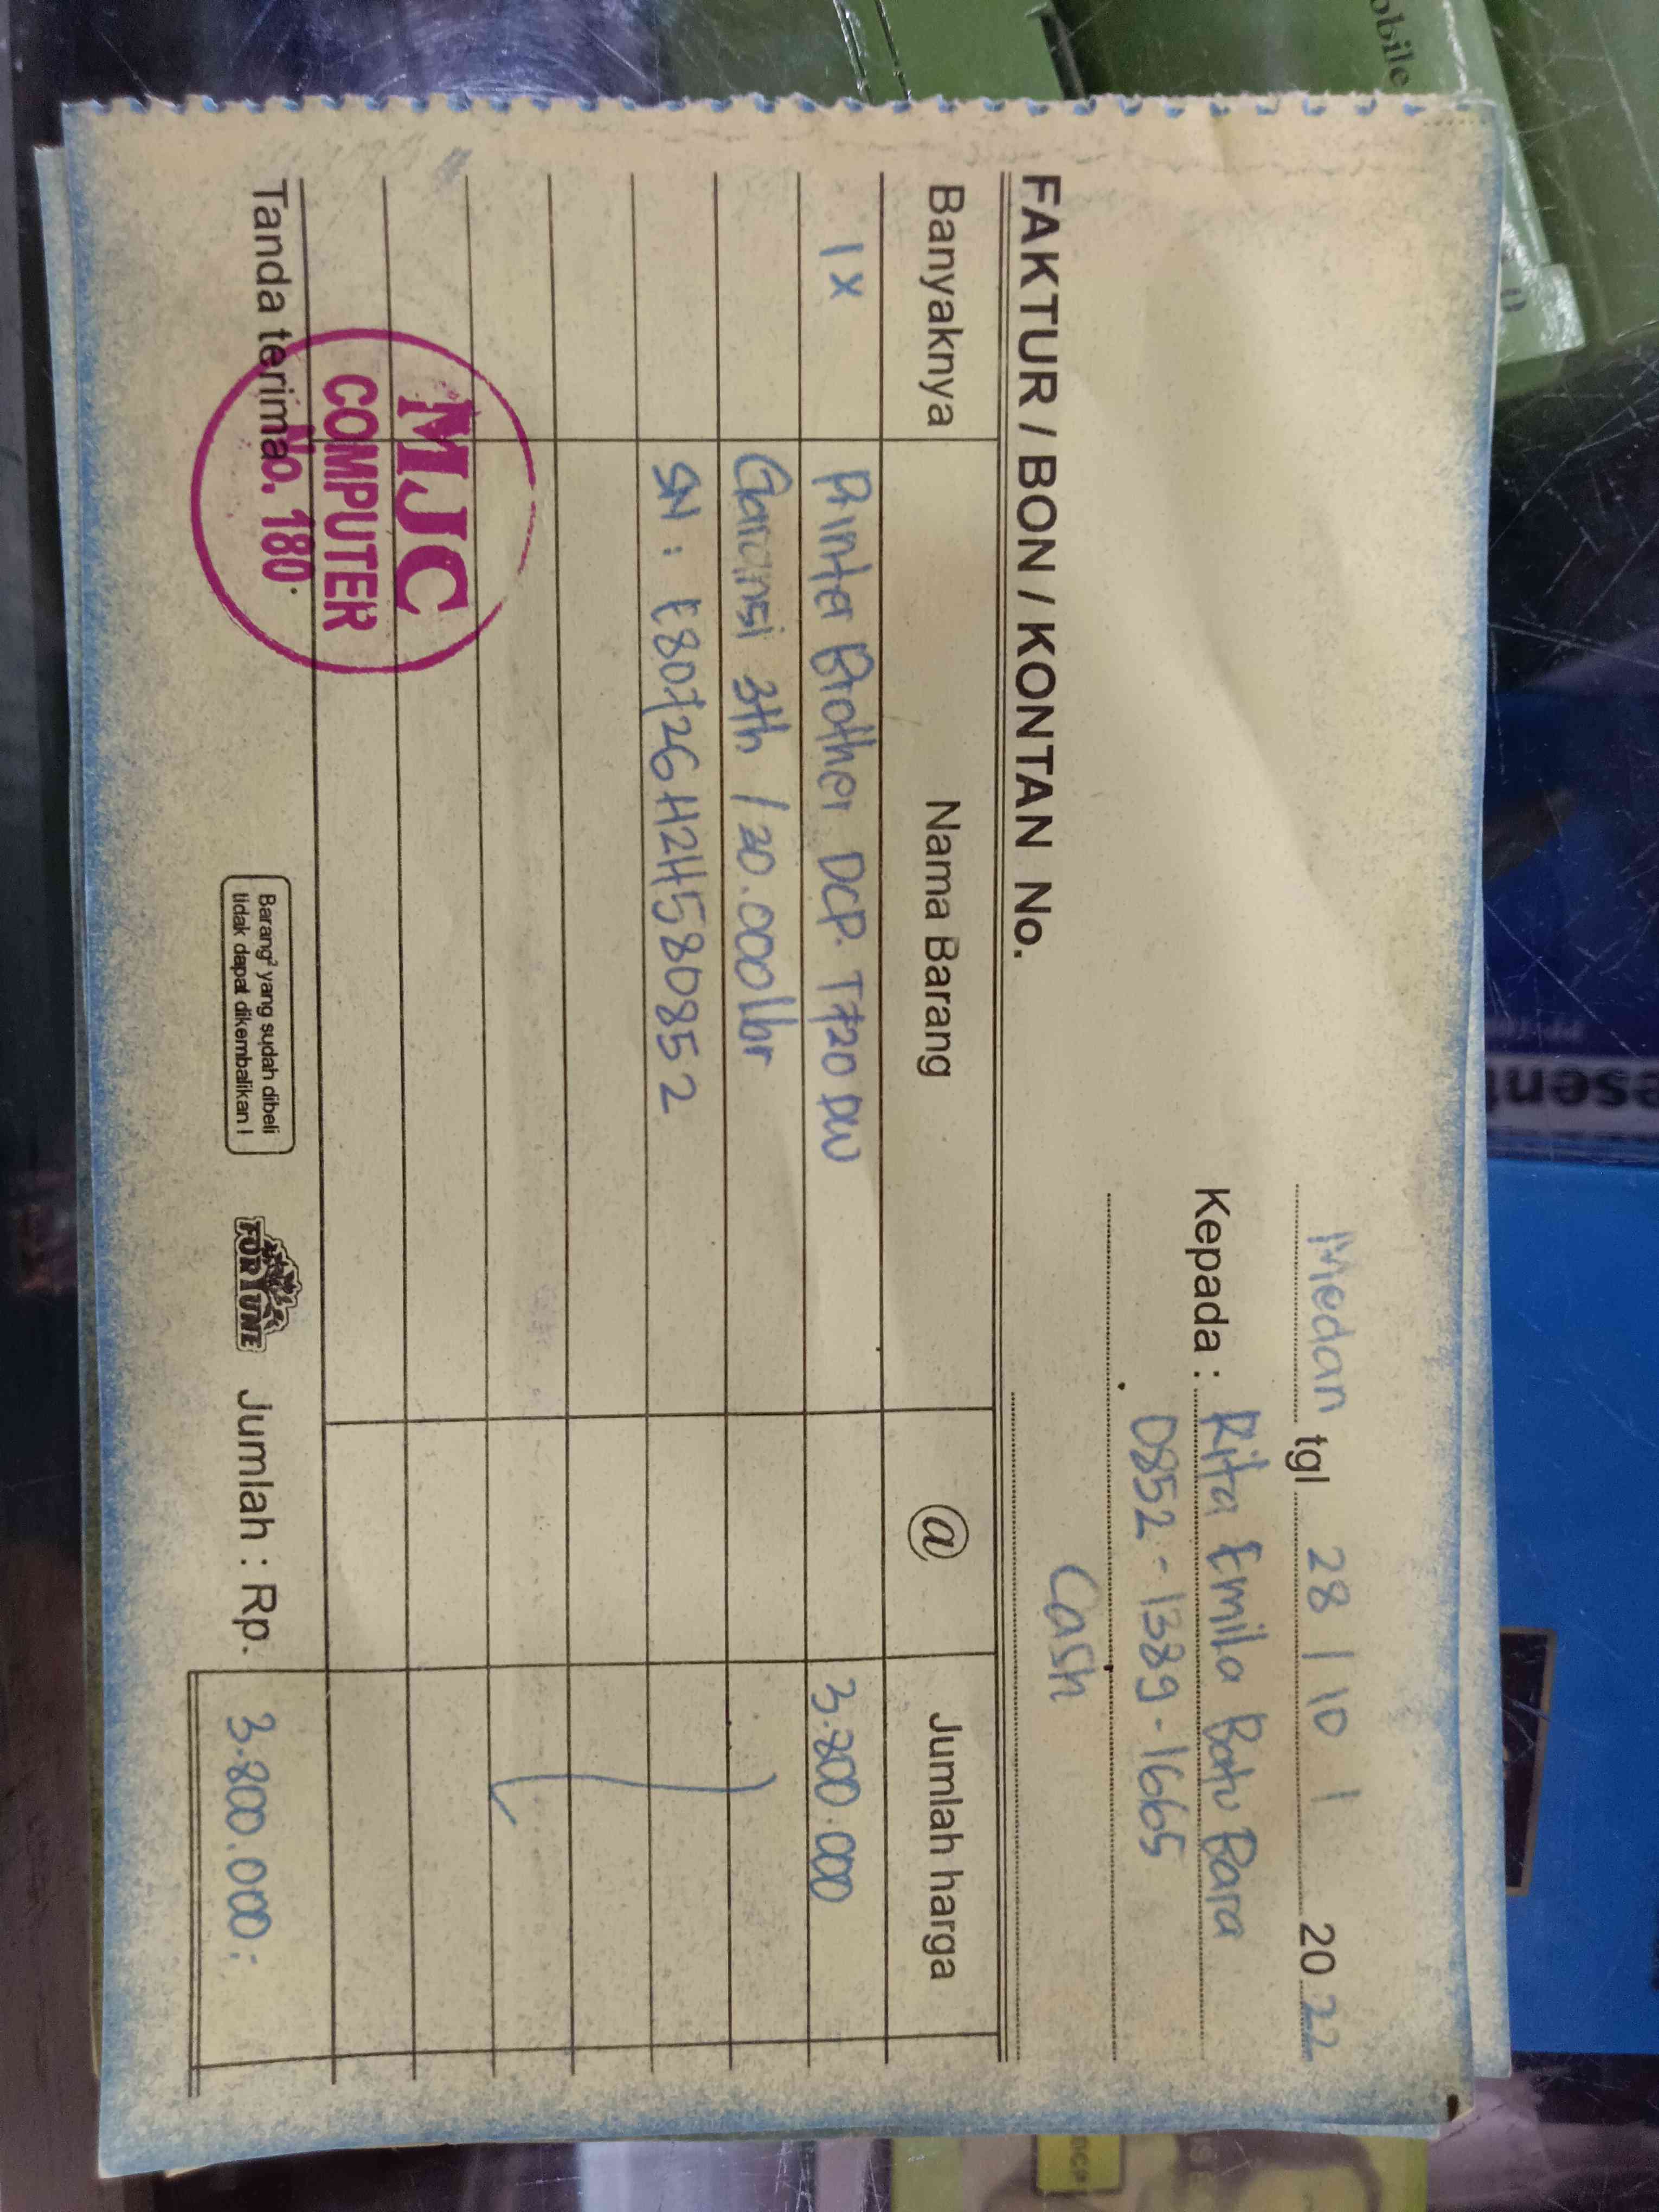 Medan tgl 28 / 10 / 2022
Kepada : Rita Emila Batu Bara
0852-1389-1665
Cash
FAKTUR / BON / KONTAN No.
Banyaknya Nama Barang @ Jumlah harga
1 x Printer Brother DCP. T720 DW 3.800.000
Garansi 3th / 20.000 lbr
SN : E80726H2H580852
MJC
COMPUTER
No. 180.
Tanda terima
Barang² yang sudah dibeli
tidak dapat dikembalikan !
FORTUNE
Jumlah : Rp. 3.800.000;
obile
esent